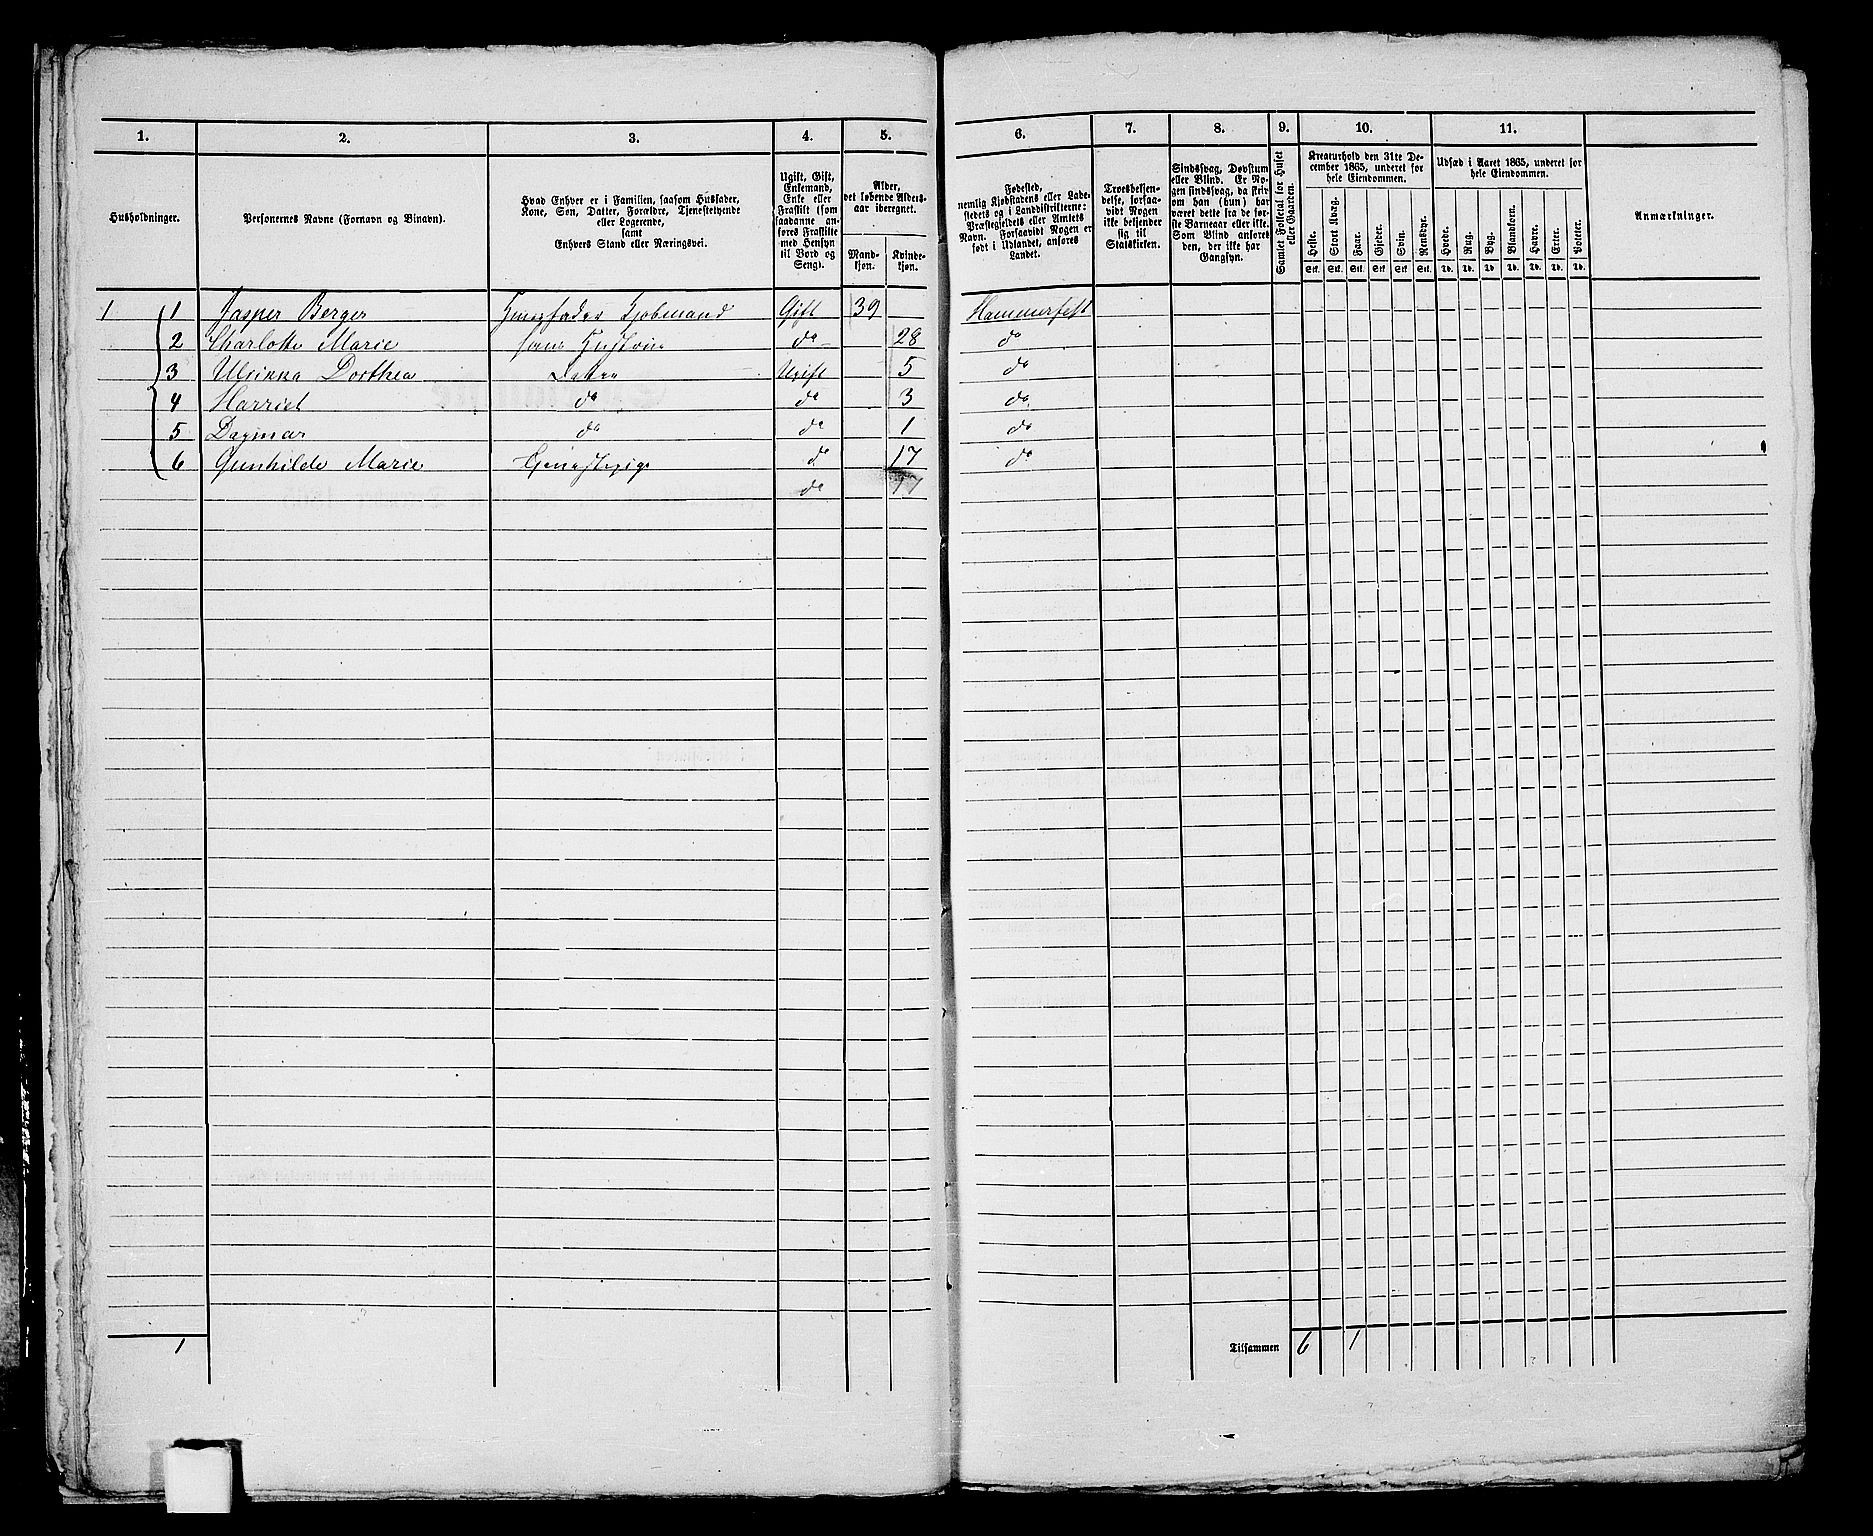 1. 2. 3. 4. 5. 6. 7. 8. 9. 10. 11.
Husholdninger.
Personernes Navne (Fornavn og Binavn).
Hvad Enhver er i Familien, saasom Husfader,
Kone, Søn, Datter, Forældre, Tjenestetyende
eller Logerende,
samt
Enhvers Stand eller Næringsvei.
Ugift, Gift,
Enkemand,
Enke eller
Fraskilt (som
saadanne an-
føres Fraskilte
med Hensyn
til Bord og
Seng).
Alder,
det løbende Alders-
aar iberegnet.
Mand-
kjøn.
Kvinde-
kjøn.
Fødested,
nemlig Kjøbstadens eller Lade-
stedets og i Landdistrikterne:
Præstegjeldets eller Amtets
Navn. Forsaavidt Nogen er
født i Udlandet, anføres
Landet.
Troesbekjen-
delse, forsaa-
vidt Nogen
ikke bekjender
sig til
Statskirken.
Sindssvag, Døvstum
eller Blind. Er No-
gen sindssvag, da skriv
om han (hun) har
været dette fra de før-
ste Barneaar eller ikke.
Som Blind anføres
den, der ikke har
Gangsyn.
Samlet Folketal for Huset
eller Gaarden.
Kreaturhold den 31te De-
cember 1865, underet for
hele Eiendommen.
Heste. Stort Kvæg. Faar. Gjeder. Svin. Rensdyr.
Stk. Stk. Stk. Stk. Stk. Stk.
Udsæd i Aaret 1865, underet for
hele Eiendommen.
Hvede. Rug. Byg. Blandkorn. Havre. Erter. Poteter.
Td. Td. Td. Td. Td. Td. Td.
Anmærkninger.
1 1 Jasper Berger Huusfader Kjøbmand Gift 39 Hammerfest
2 Charlotte Marie hans Hustrue do 28 do
3 Ulrikka Dorthea Datter Ugift 5 do
4 Harriet do do 3 do
5 Dagmar do do 1 do
6 Gunhilde Marie Tjenestepige do 17 do
do 17
1 Tilsammen 6 1